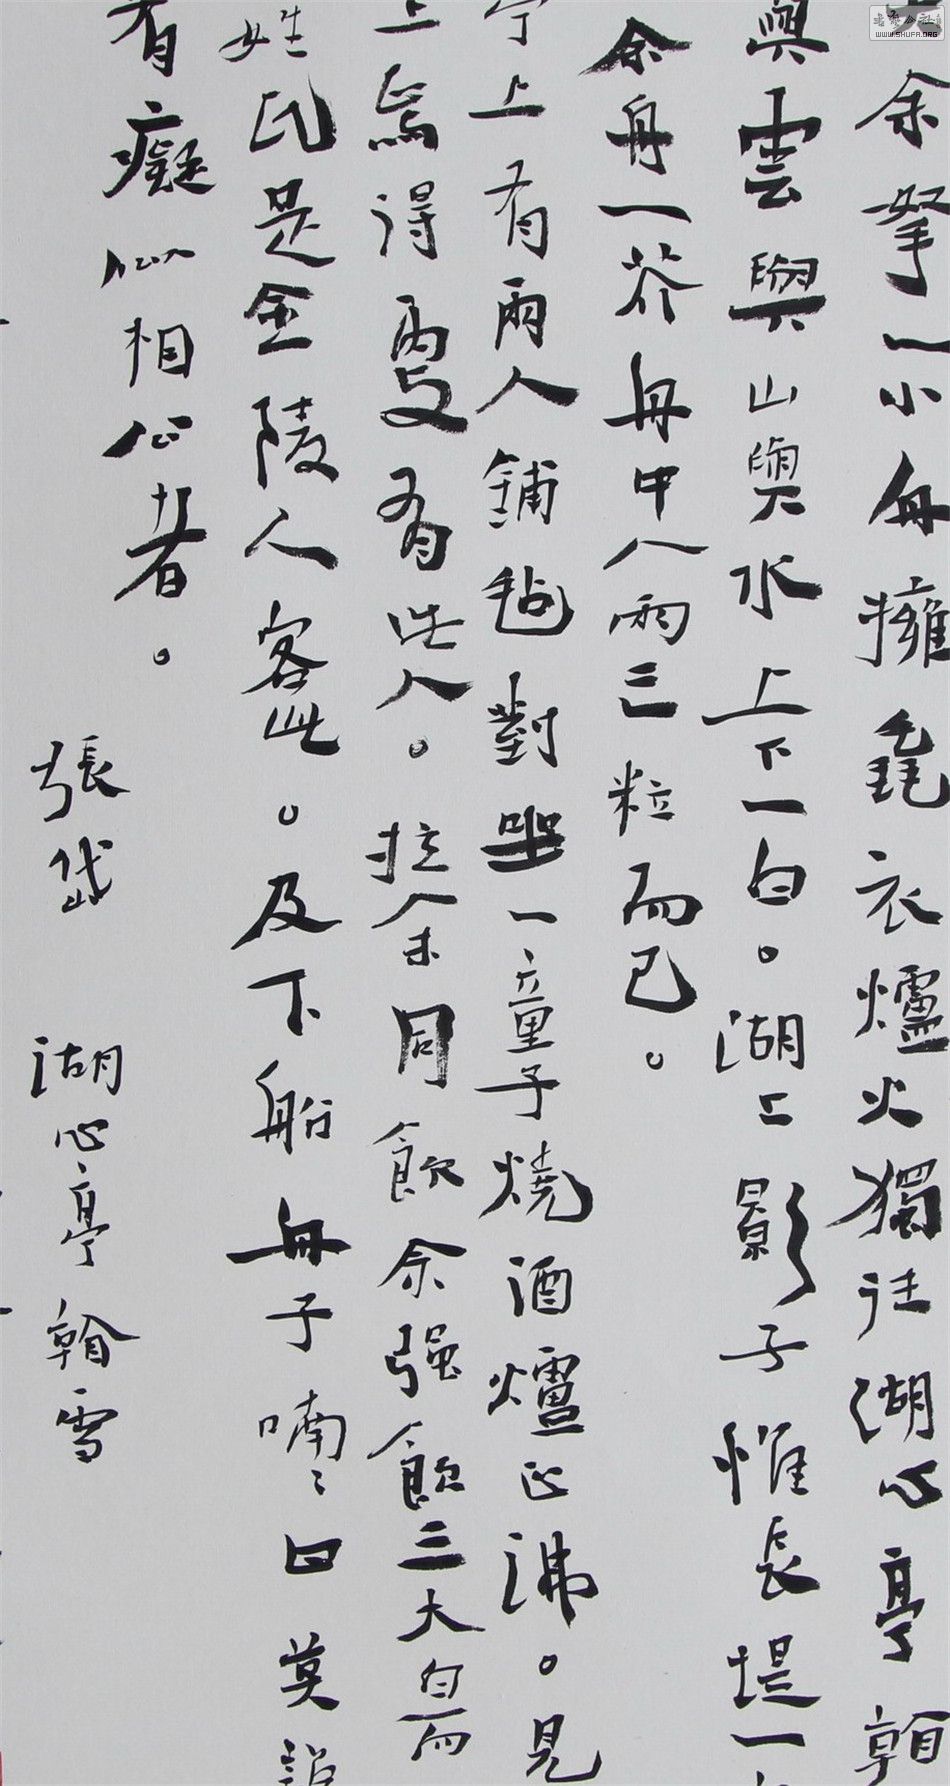 余拏一小舟擁毳衣爐火獨往湖心亭
與雲與山與水上下一白。湖上影子惟長堤一
余舟一芥舟中人兩三粒而已。
上有兩人鋪氈對坐一童子燒酒爐正沸。見
上焉得更有此人。拉余同飲余强飲三大白而
姓氏是金陵人客此。及下船舟子喃〻曰莫說
有癡似相公者。
張岱 湖心亭㸔雪
書法公社
WWW.SHUFA.ORG